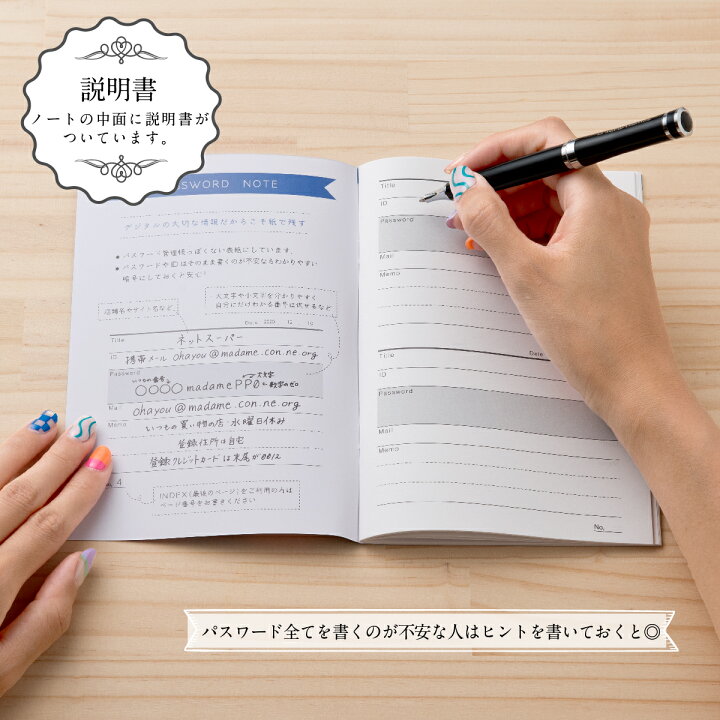 説明書
ノートの中面に説明書が
ついています。
SSWORD NOTE
デジタルの大切な情報だからこそ紙で残す
● パスワード管理帳っぽくない表紙にしています。
● パスワードやIDはそのまま書くのが不安な方わかりやすい
暗号にしておくと安心!
店舗名やサイト名など
大文字や小文字を分かりやすく
自分にだけわかる番号に伏せるなど
Date 2020 . 12 . 10
Title ネットスーパー
ID 携帯メール ohayou@madame.con.ne.org
Password いつもの番号 大文字
○○○○madamePP0 数字のゼロ
Mail ohayou@madame.con.ne.org
Memo いつもの買い物の店・水曜日休み
登録住所は自宅
登録クレジットカードは末尾が0012
4
INDEX(最後のページ)をご利用の方は
ページ番号をお書きください
Title
ID
Password
Mail
Memo
Title Date
ID
Password
Mail
Memo
No.
パスワード全てを書くのが不安な人はヒントを書いておくと◎